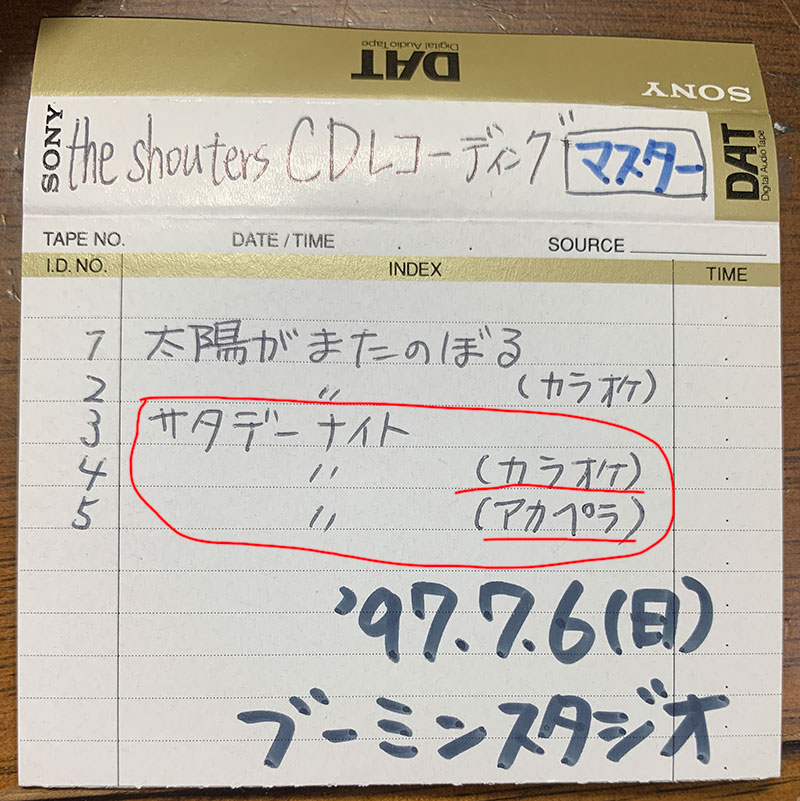 DAT
Digital Audio Tape
SONY
SONY
the shouters CDレコーディング マスター
DAT
Digital Audio Tape
TAPE NO. DATE / TIME . . SOURCE
I.D. NO. INDEX TIME
1 太陽がまたのぼる
2 〃 (カラオケ)
3 サタデーナイト
4 〃 (カラオケ)
5 〃 (アカペラ)
'97.7.6(日)
ブーミンスタジオ